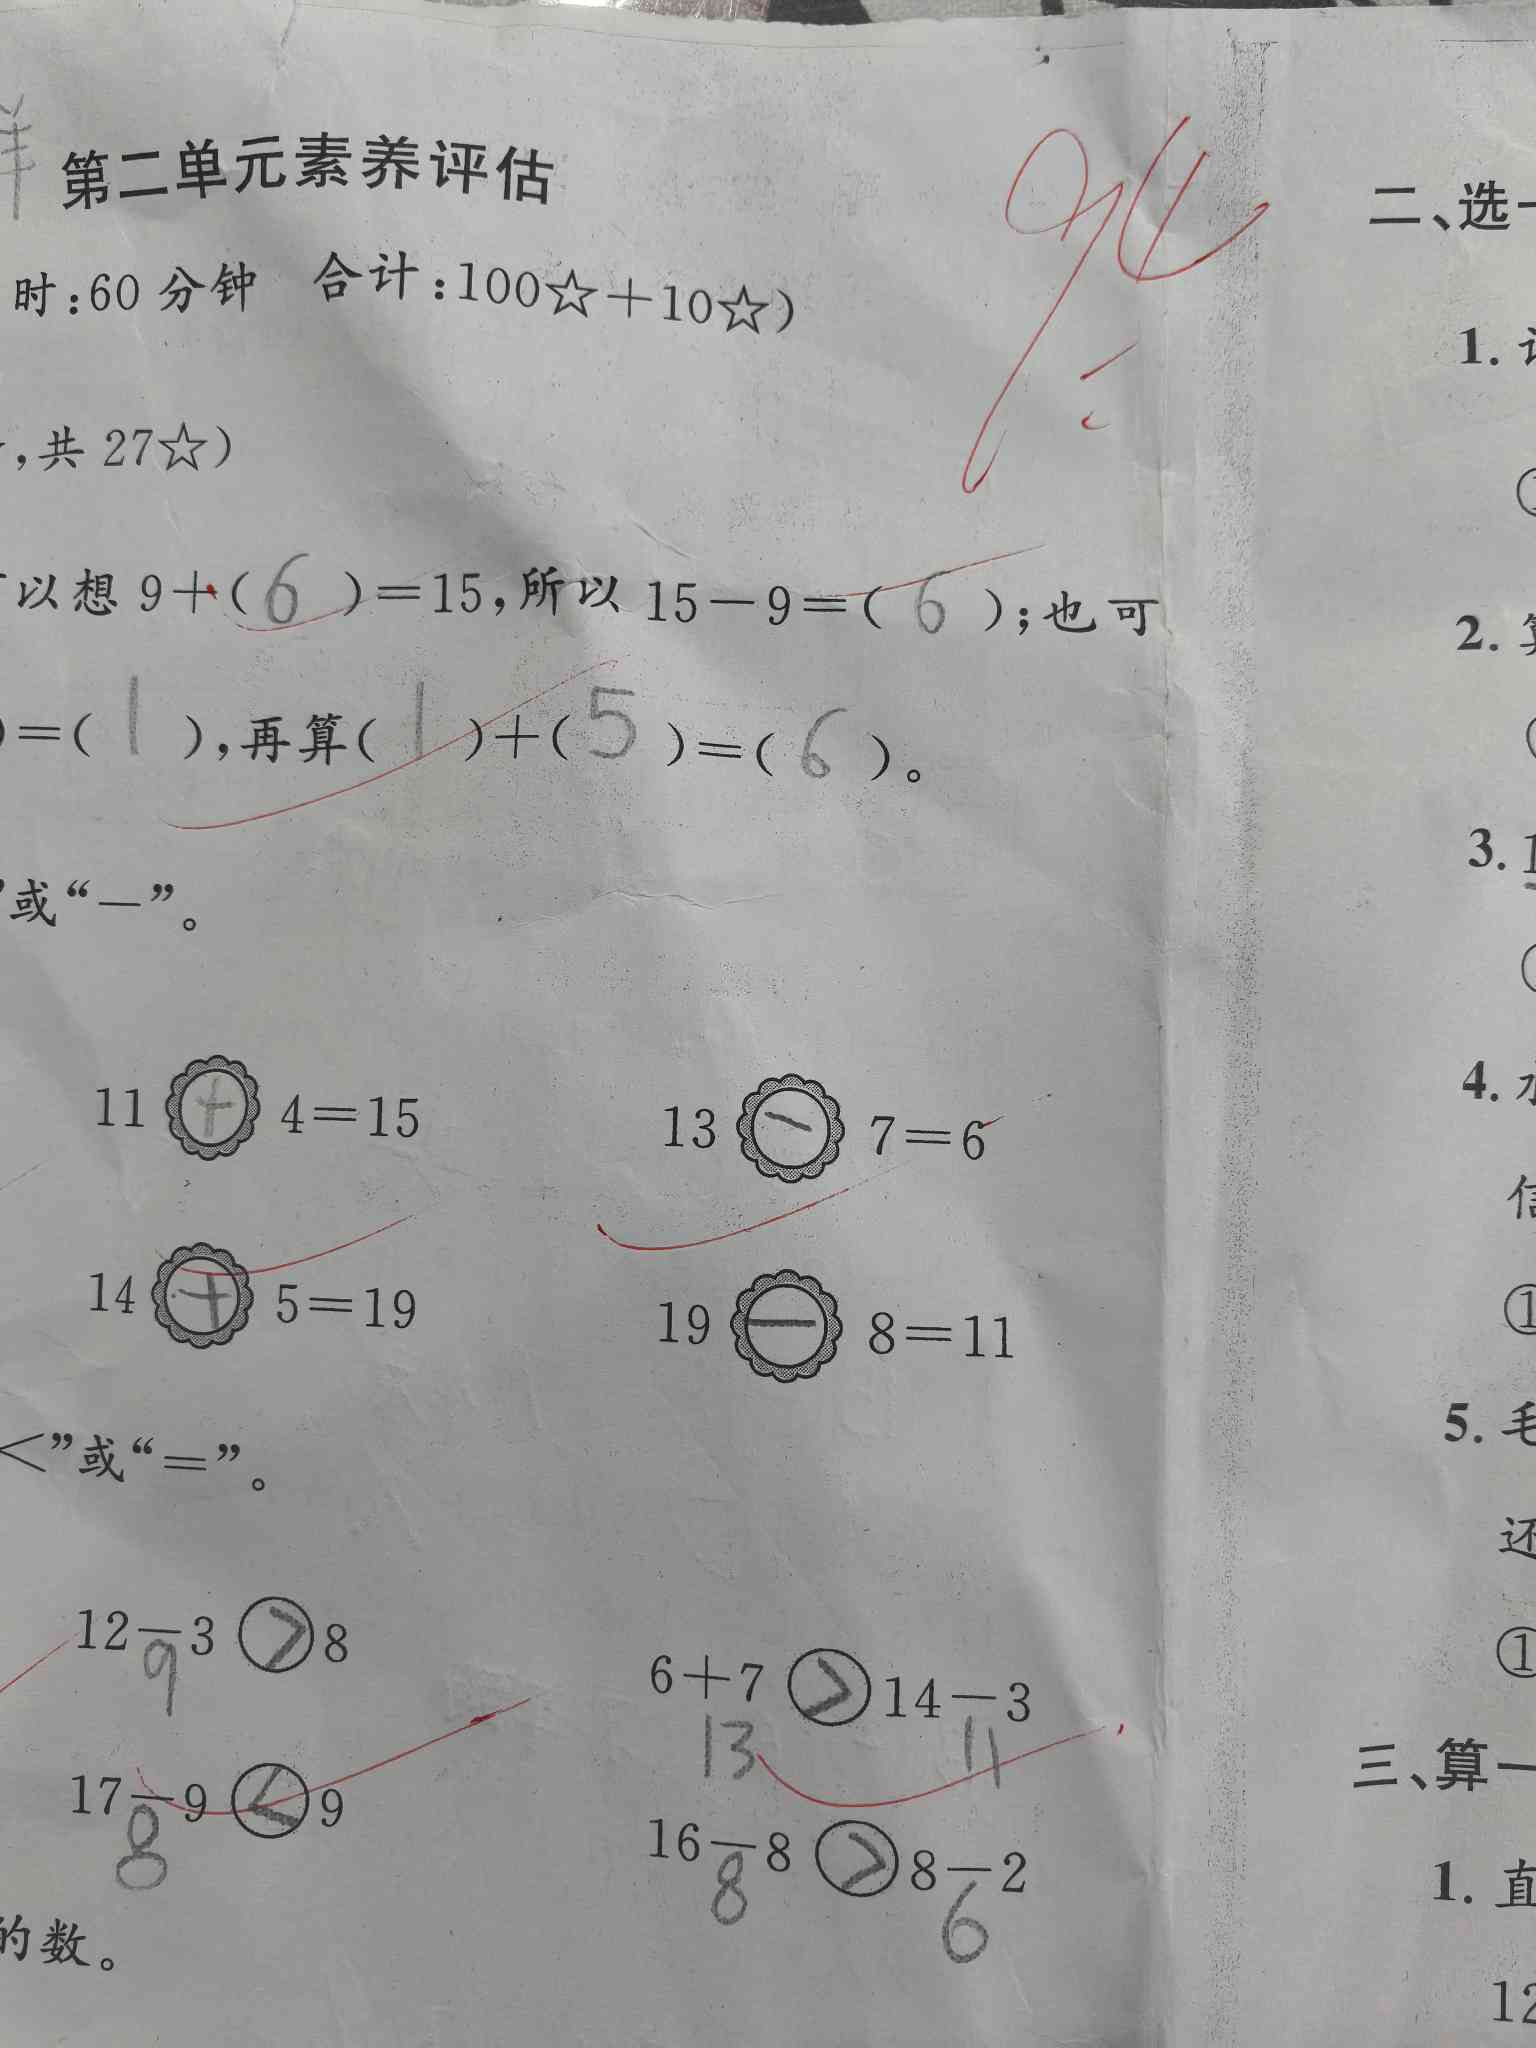 第二单元素养评估
94
时:60分钟 合计:100☆+10☆)
,共27☆)
以想9+(6)=15,所以15-9=(6);也可
)=(1),再算(1)+(5)=(6)。
”或“-”。
11+4=15 13-7=6
14+5=19 19-8=11
<”或“=”。
12-3>8 6+7>14-3
9 13 11
17-9<9 16-8>8-2
8 8 6
的数。
二、选
1.
①
2.
3. 1
4.
①
5.
还
①
三、算
1. 直
12